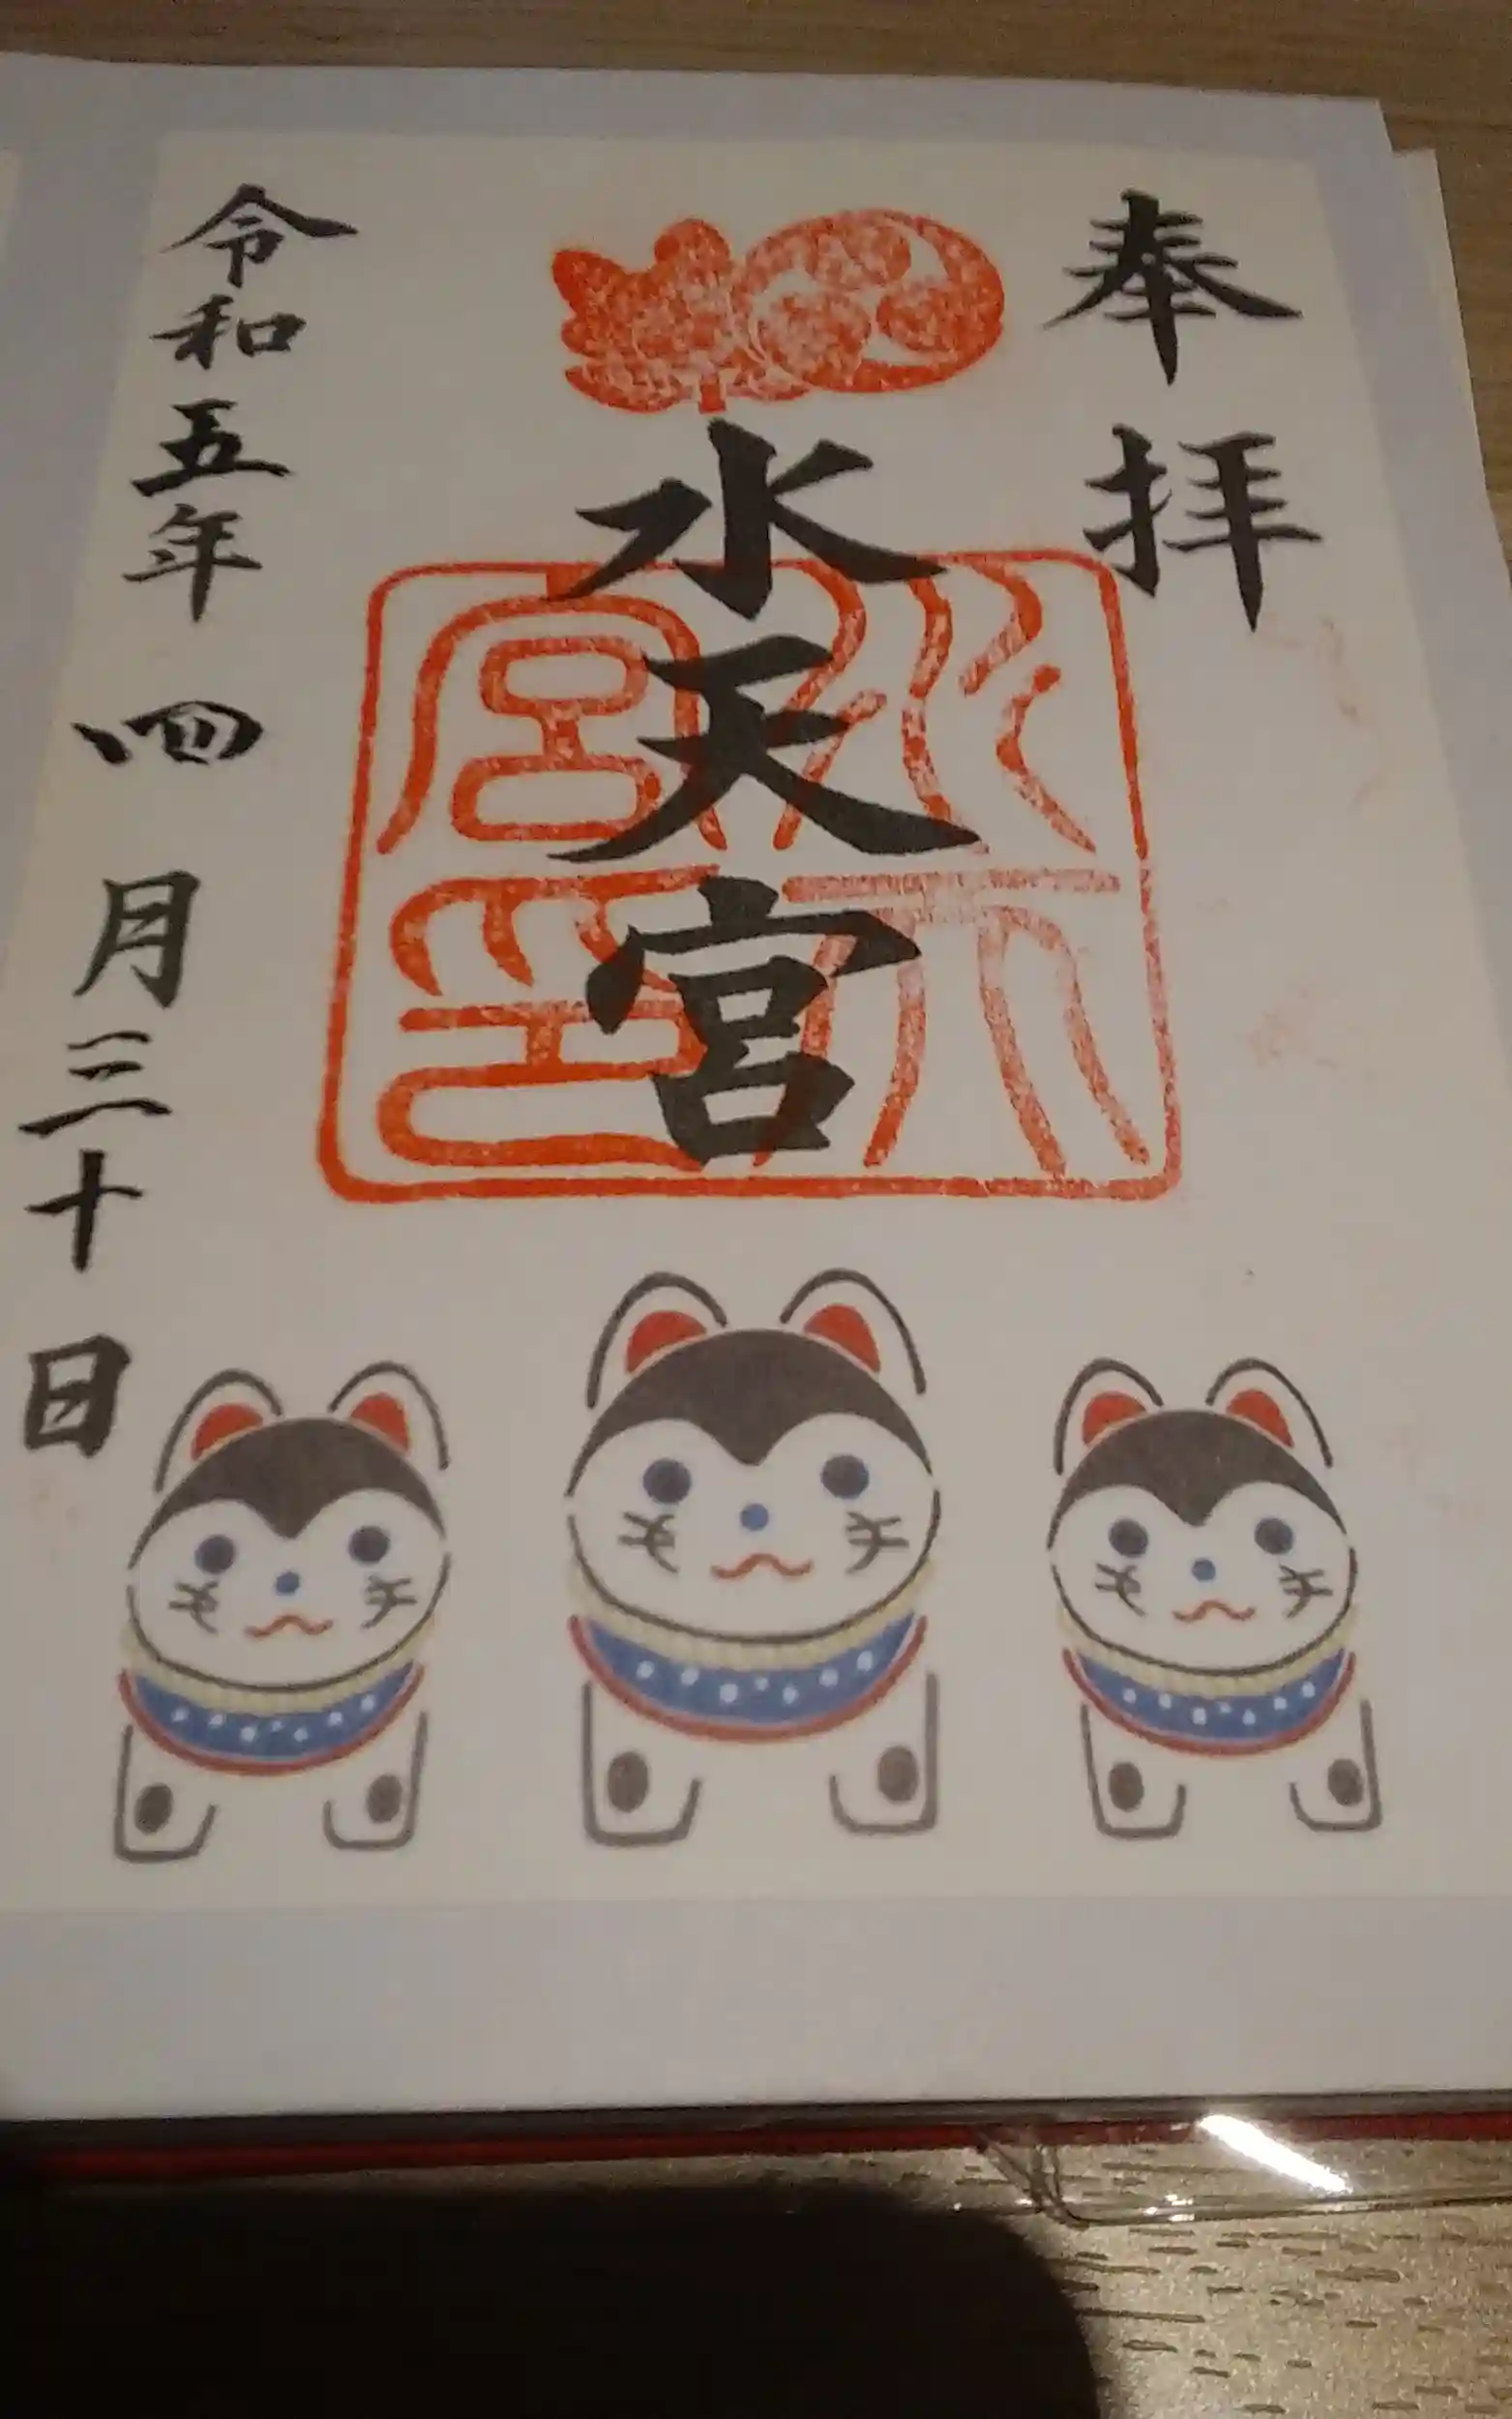 奉拝
水天宮
水天宮印
令和五年四月三十日